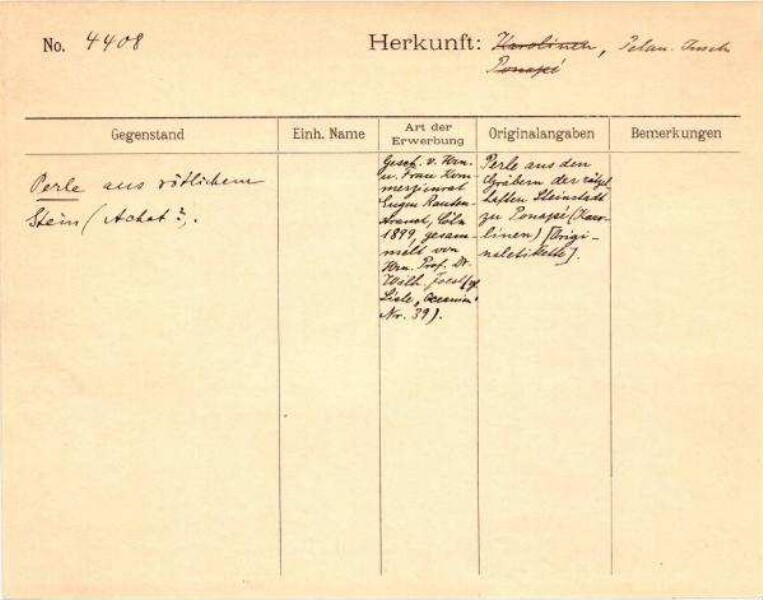 No. 4408
Herkunft: Karolinen, Pelau-Inseln
Ponapé
Gegenstand
Einh. Name
Art der
Erwerbung
Originalangaben
Bemerkungen
Perle aus rötlichem
Stein (Achat?).
Gesch. v. Hrn.
u. Frau Kom-
merzienrat
Eugen Rauten-
strauch, Cöln
1899, gesam-
melt von
Hrn. Prof. Dr.
Wilh. Joest (cf.
Liste „Oceanien“
Nr. 39).
Perle aus den
Gräbern der rätsel
haften Steinstadt
zu Ponapé (Karo-
linen) [Origi-
naletikette].